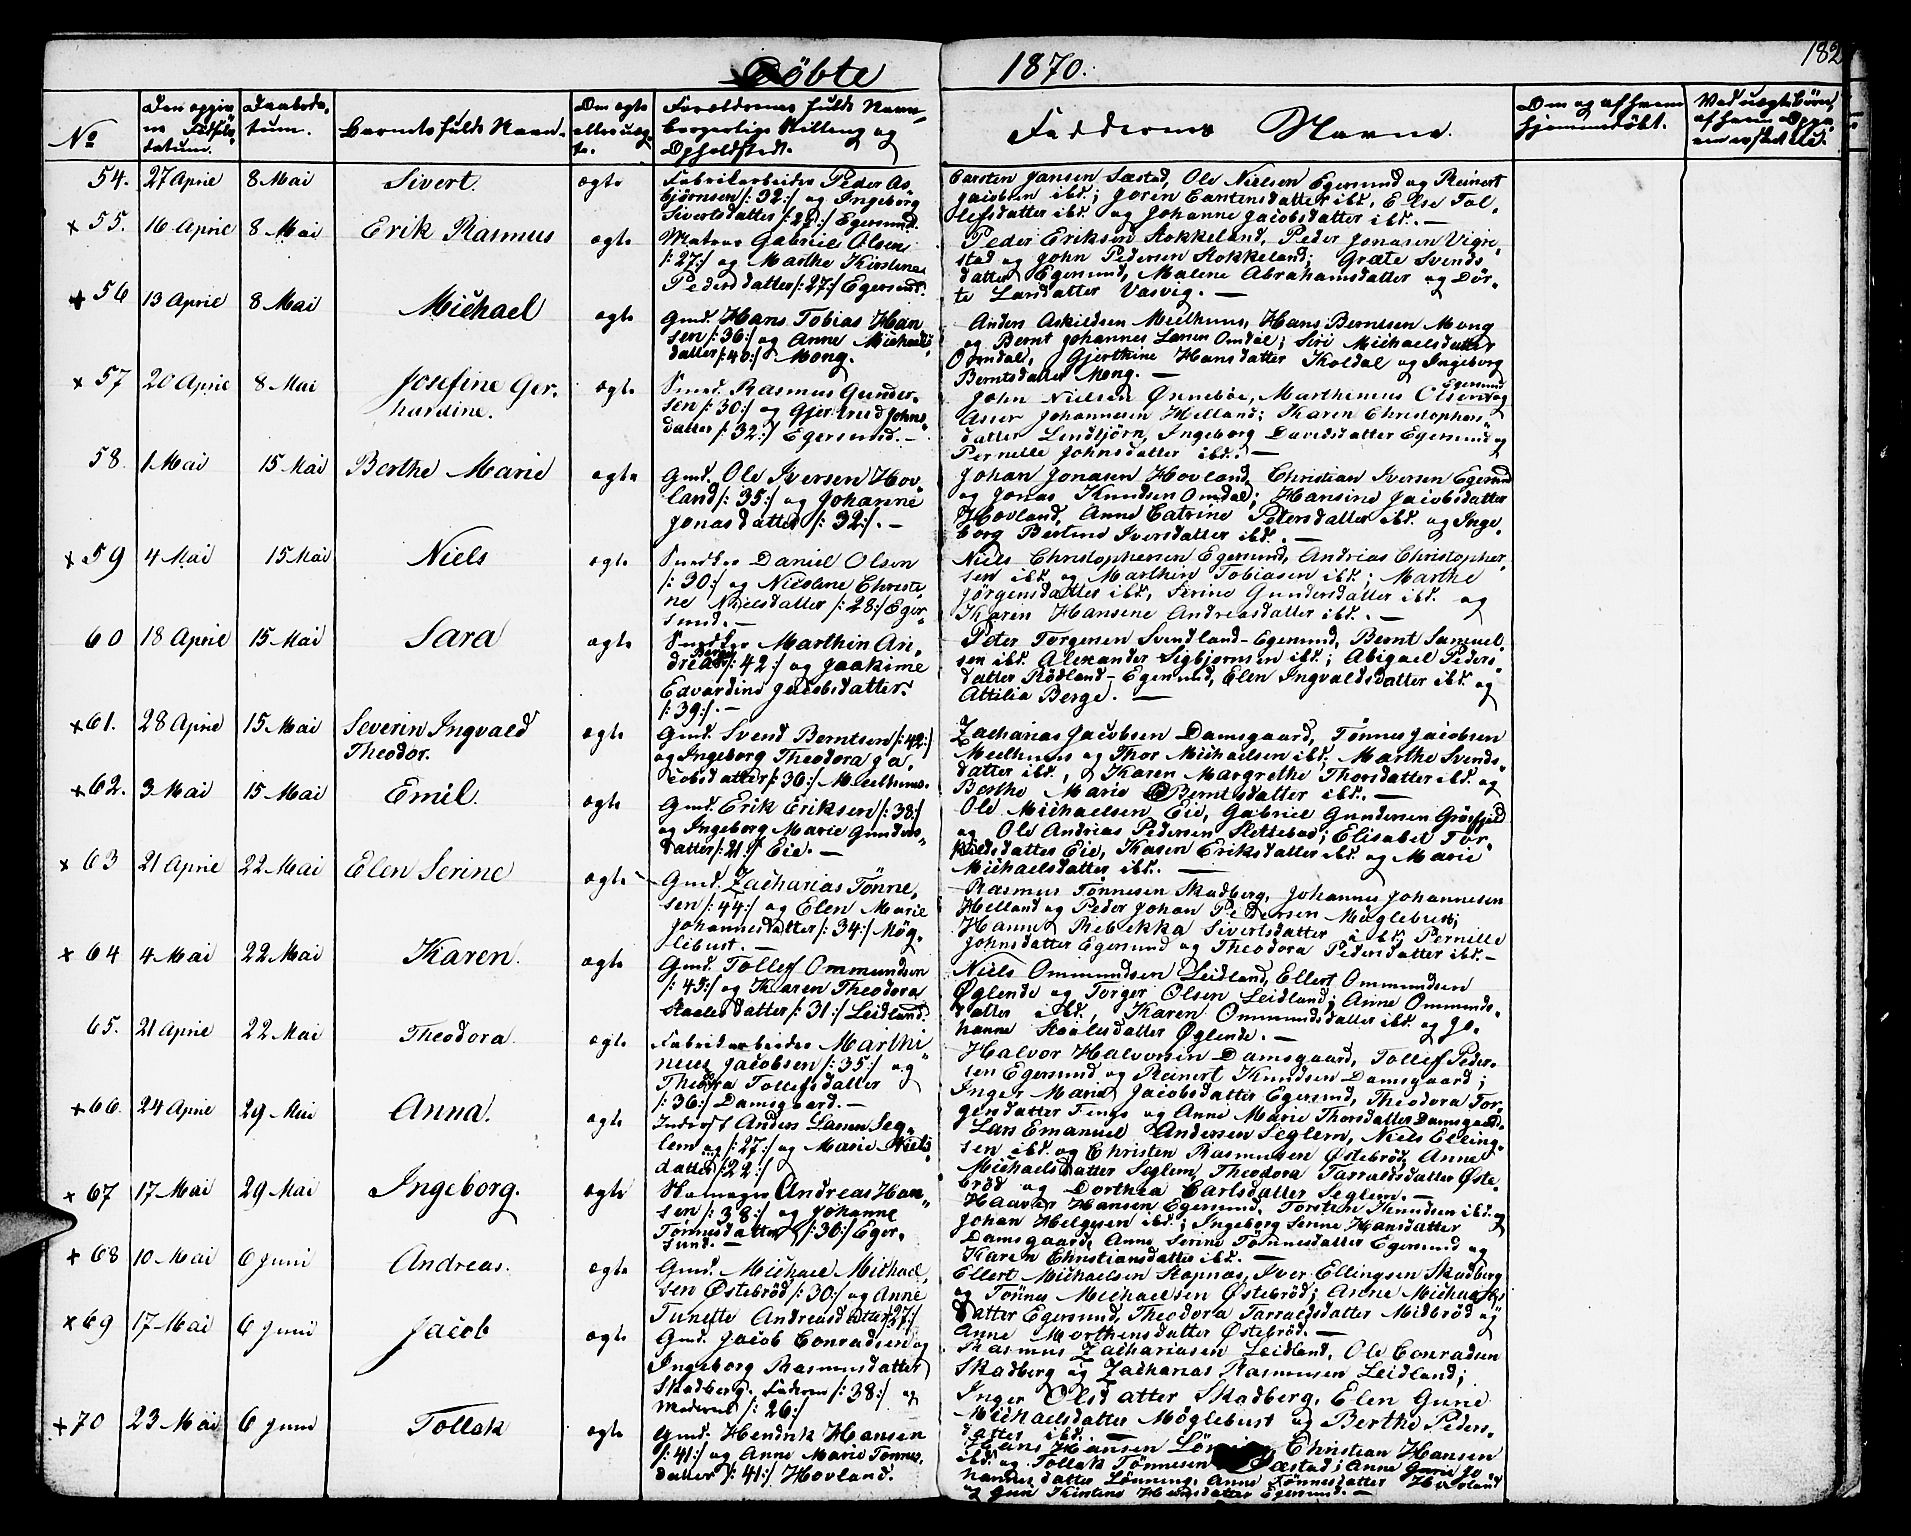 Døbte 1870. 182
No
Den opgiv-
ne Fødsels-
datum.
Daabsda-
tum.
Barnets fulde Navn.
Om ægte
eller uæg-
te.
Forældrenes fulde Navn,
borgerlige Stilling og
Opholdsted.
Faddernes Navne.
Om og af hvem
hjemmedøbt.
Ved uægte Børn,
af hvem Opga-
54. 27 April 8 Mai Sivert. ægte
Fabrikarbeider Peder As-
bjørnsen /: 32:/ og Ingeborg
Sivertsdatter /: 27:/ Egersund.
Carsten Jansen Sæstad, Ole Nielsen Egersund og Reinert
Jacobsen ibd; Joren Carstensdatter ibd, Else Tol-
lefsdatter ibd og Johanne Jacobsdatter ibd. —
+ 55. 16 April 8 Mai Erik Rasmus ægte
Matros Gabriel Olsen
/: 27:/ og Marthe Kirstine
Pedersdatter /: 27:/ Egersund.
Peder Eriksen Stokkeland, Peder Jonasen Vigre-
stad og John Pedersen Stokkeland; Græte Svends-
datter Egersund, Malene Abrahamsdatter og Dor-
te Larsdatter Vasvig. —
+ 56 13 April 8 Mai Michael ægte
Gmd. Hans Tobias Han-
sen /: 36:/ og Anne Michaels-
datter /: 40:/ Mong.
Anders Askildsen Meelhuus, Hans Berntsen Mong
og Bernt Johannes Larsen Omdal; Siri Michaelsdatter
Omdal, Gjerthine Hansdatter Koldal og Ingeborg
Berntsdatter Mong. —
+ 57 20 April 8 Mai Josefine Ger-
hardine. ægte
Smed. Rasmus Gunder-
sen /: 30:/ og Gjertrud Johns-
datter /: 32:/ Egersund. —
John Nielsen Ønneböe, Marthinius Olsen Egersund og
Asser Johannesen Helland; Karen Christophers-
datter Lendtjörn, Ingeborg Davidsdatter Egersund og
Pernille Johnsdatter ibd. —
58. 1 Mai 15 Mai Berthe Marie ægte
Gmd. Ole Iversen Hov-
land /: 35:/ og Johanne
Jonasdatter /: 32:/. —
Johan Jonasen Hovland, Christian Iversen Egersund
og Jonas Knudsen Omdal; Hansine Jacobsdatter
Hovland, Anne Catrine Petersdatter ibd. og Inge-
borg Bertine Iversdatter ibd. —
+ 59 4 Mai 15 Mai Niels ægte
Snedker Daniel Olsen
/: 30:/ og Nicoline Christi-
ne Nielsdatter /: 28:/ Eger-
sund. —
Niels Christophersen Egersund, Andrias Christopher-
sen ibd. og Marthin Tobiasen ibd.; Marthe
Jörgensdatter ibd, Serine Gundersdatter ibd. og
Karin Hansene Andreasdatter ibd. —
60 18 April 15 Mai Sara ægte
Snedker Marthin An-
dreas Berge /: 42:/ og Joakime
Edvardine Jacobsdatter.
/: 39:/. —
Peter Torgersen Svendland-Egersund, Bernt Samuel-
sen ibd. Alexander Sigbjørnsen ibd.; Abigael Peders-
datter Rödland-Egersund, Elen Ingvaldsdatter ibd. og
Attilia Berge. —
+ 61. 28 April 15 Mai Severin Ingvald
Theodor. ægte
Gmd. Svend Berntsen /: 42:/
og Ingeborg Theodora Ja-
cobsdatter /: 36:/ Meelhuus.
Zacharias Jacobsen Damsgaard, Tönnes Jacobsen
Meelhuus og Thor Michaelsen ibd; Marthe Svends-
datter ibd., Karen Margrethe Thorsdatter ibd. og
Berthe Marie Berntsdatter ibd. —
+ 62. 3 Mai 15 Mai Emil. ægte
Gmd. Erik Eriksen /: 38:/
og Ingeborg Marie Gunders-
datter /: 21:/ Eie. —
Ole Michaelsen Eie, Gabriel Gundersen Gröesfjeld
og Ole Andrias Pedersen Slettebøe; Elisabet Tor-
kildsdatter Eie, Karen Eriksdatter ibd. og Marie
Michaelsdatter ibd. —
+ 63 21 April 22 Mai Elen Serine ægte
Gmd. Zacharias Tönne-
sen /: 44:/ og Elen Marie
Johannesdatter /: 34:/ Mög-
lebust. —
Rasmus Tönnesen Skadberg, Johannes Johannesen
Helland og Peder Johan Pedersen Möglebust;
Hanne Rebekka Sivertsdatter ibd; Pernille
Johnsdatter Egersund og Theodora Pedersdatter ibd. —
+ 64 4 Mai 22 Mai Karen. ægte
Gmd. Tollef Ommundsen
/: 43:/ og Karen Theodora
Staalesdatter /: 31:/ Leidland.
Niels Ommundsen Leidland, Ellert Ommundsen
Øglende og Torger Olsen Leidland; Anne Ommunds-
datter ibd., Karen Ommundsdatter ibd. og Jo-
hanne Staalesdatter Øglende. —
65. 21 April 22 Mai Theodora. ægte
Fabrikarbeider Marthi-
neus Jacobsen /: 35:/ og
Theodora Tollefsdatter
/: 36:/ Damsgaard. —
Halvor Halvorsen Damsgaard, Tollef Peder-
sen Egersund og Reinert Knudsen Damsgaard;
Inger Marie Jacobsdatter Egersund, Theodora Tor-
gersdatter Tengs og Anne Marie Thorsdatter Damsgaard.
+ 66. 24 April 29 Mai Anna. ægte
Inderst Anders Larsen Seg-
lem /: 27:/ og Marie Niels-
datter /: 22:/
Lars Emanuel Andersen Seglem, Niels Elling-
sen ibd. og Christen Rasmussen Østebröd; Anne
Michaelsdatter Seglem, Theodora Tarraldsdatter Øste-
bröd og Dorthea Carlsdatter Seglem. —
+ 67 17 Mai 29 Mai Ingeborg. ægte
Skomager Andreas Han-
sen /: 38:/ og Johanne
Tönnesdatter /: 30:/ Eger-
sund. —
Haaver Hansen Egersund, Torsten Knudsen ibd. og
Johan Helgesen ibd.; Ingeborg Serine Hansdatter
Damsgaard, Anne Serine Tönnesdatter Egersund og
Karen Christiansdatter ibd. —
+ 68 10 Mai 6 Juni Andreas. ægte
Gmd. Michael Michael-
sen Østebröd /: 30:/ og Anne
Tunette Andreasdatter /: 27:/
Ellert Michaelsen Stapnæs, Iver Ellingsen Skadberg
og Tönnes Michaelsen Østebröd; Anne Michaels-
datter Egersund, Theodora Tarraldsdatter Midbröd og
Anne Morthensdatter Østebröd. —
+ 69 17 Mai 6 Juni Jacob ægte
Gmd. Jacob Conradsen og
Ingeborg Rasmusdatter
Skadberg. Faderen /: 38:/ og
Moderen /: 26:/
Rasmus Zachariasen Leidland, Ole Conradsen
Skadberg og Zacharias Rasmussen Leidland;
Inger Olsdatter Skadberg, Elen Gune
Michaelsdatter Möglebust og Berthe Peders-
datter ibd. —
+ 70 23 Mai 6 Juni Tollak ægte
Gmd. Hendrik Hansen
/: 41:/ og Anne Marie Tönnes-
datter /: 41:/ Hovland.
Hans Hansen Christian Hansen
ibd. og Tollak Tönnesen Sæstad; Anne Jo-
hannesdatter Lönning, Anne Tönnesdatter Hovland
og Guri Kirstine Hansdatter Egersund. —